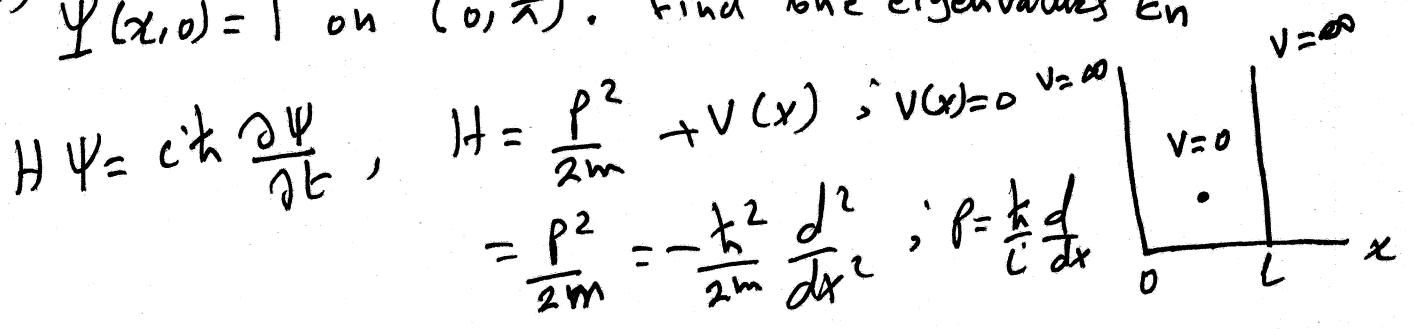 Ψ(x,0) = 1 on (0,π). Find the eigenvalues En
HΨ = iħ ∂Ψ/∂t, H = p²/2m + V(x) ; V(x)=0
= p²/2m = -ħ²/2m d²/dx² ; p = ħ/i d/dx
V=∞ V=∞
V=0
0 L x